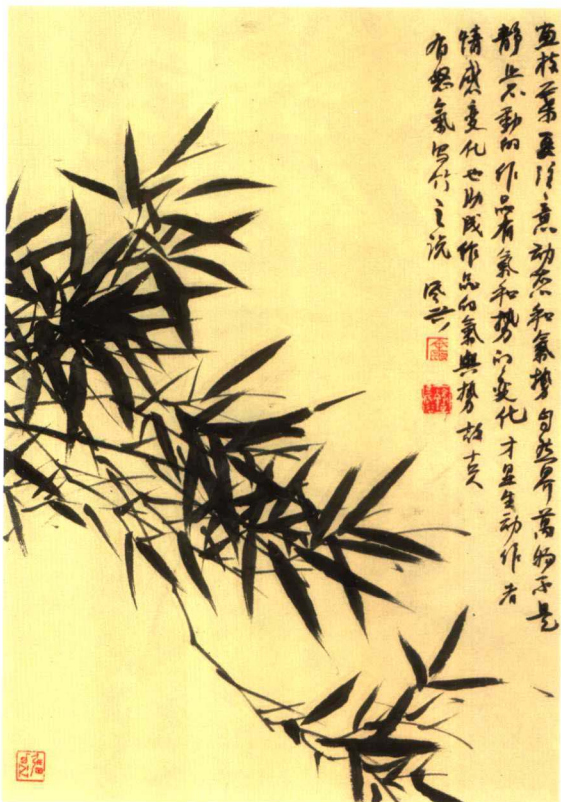 画枝叶要注意动态和氣势自然界萬物不是
静止不動的作品有氣和势的变化才显生动作者
情感变化也助成作品的氣與势故古人
有怒氣写竹之说